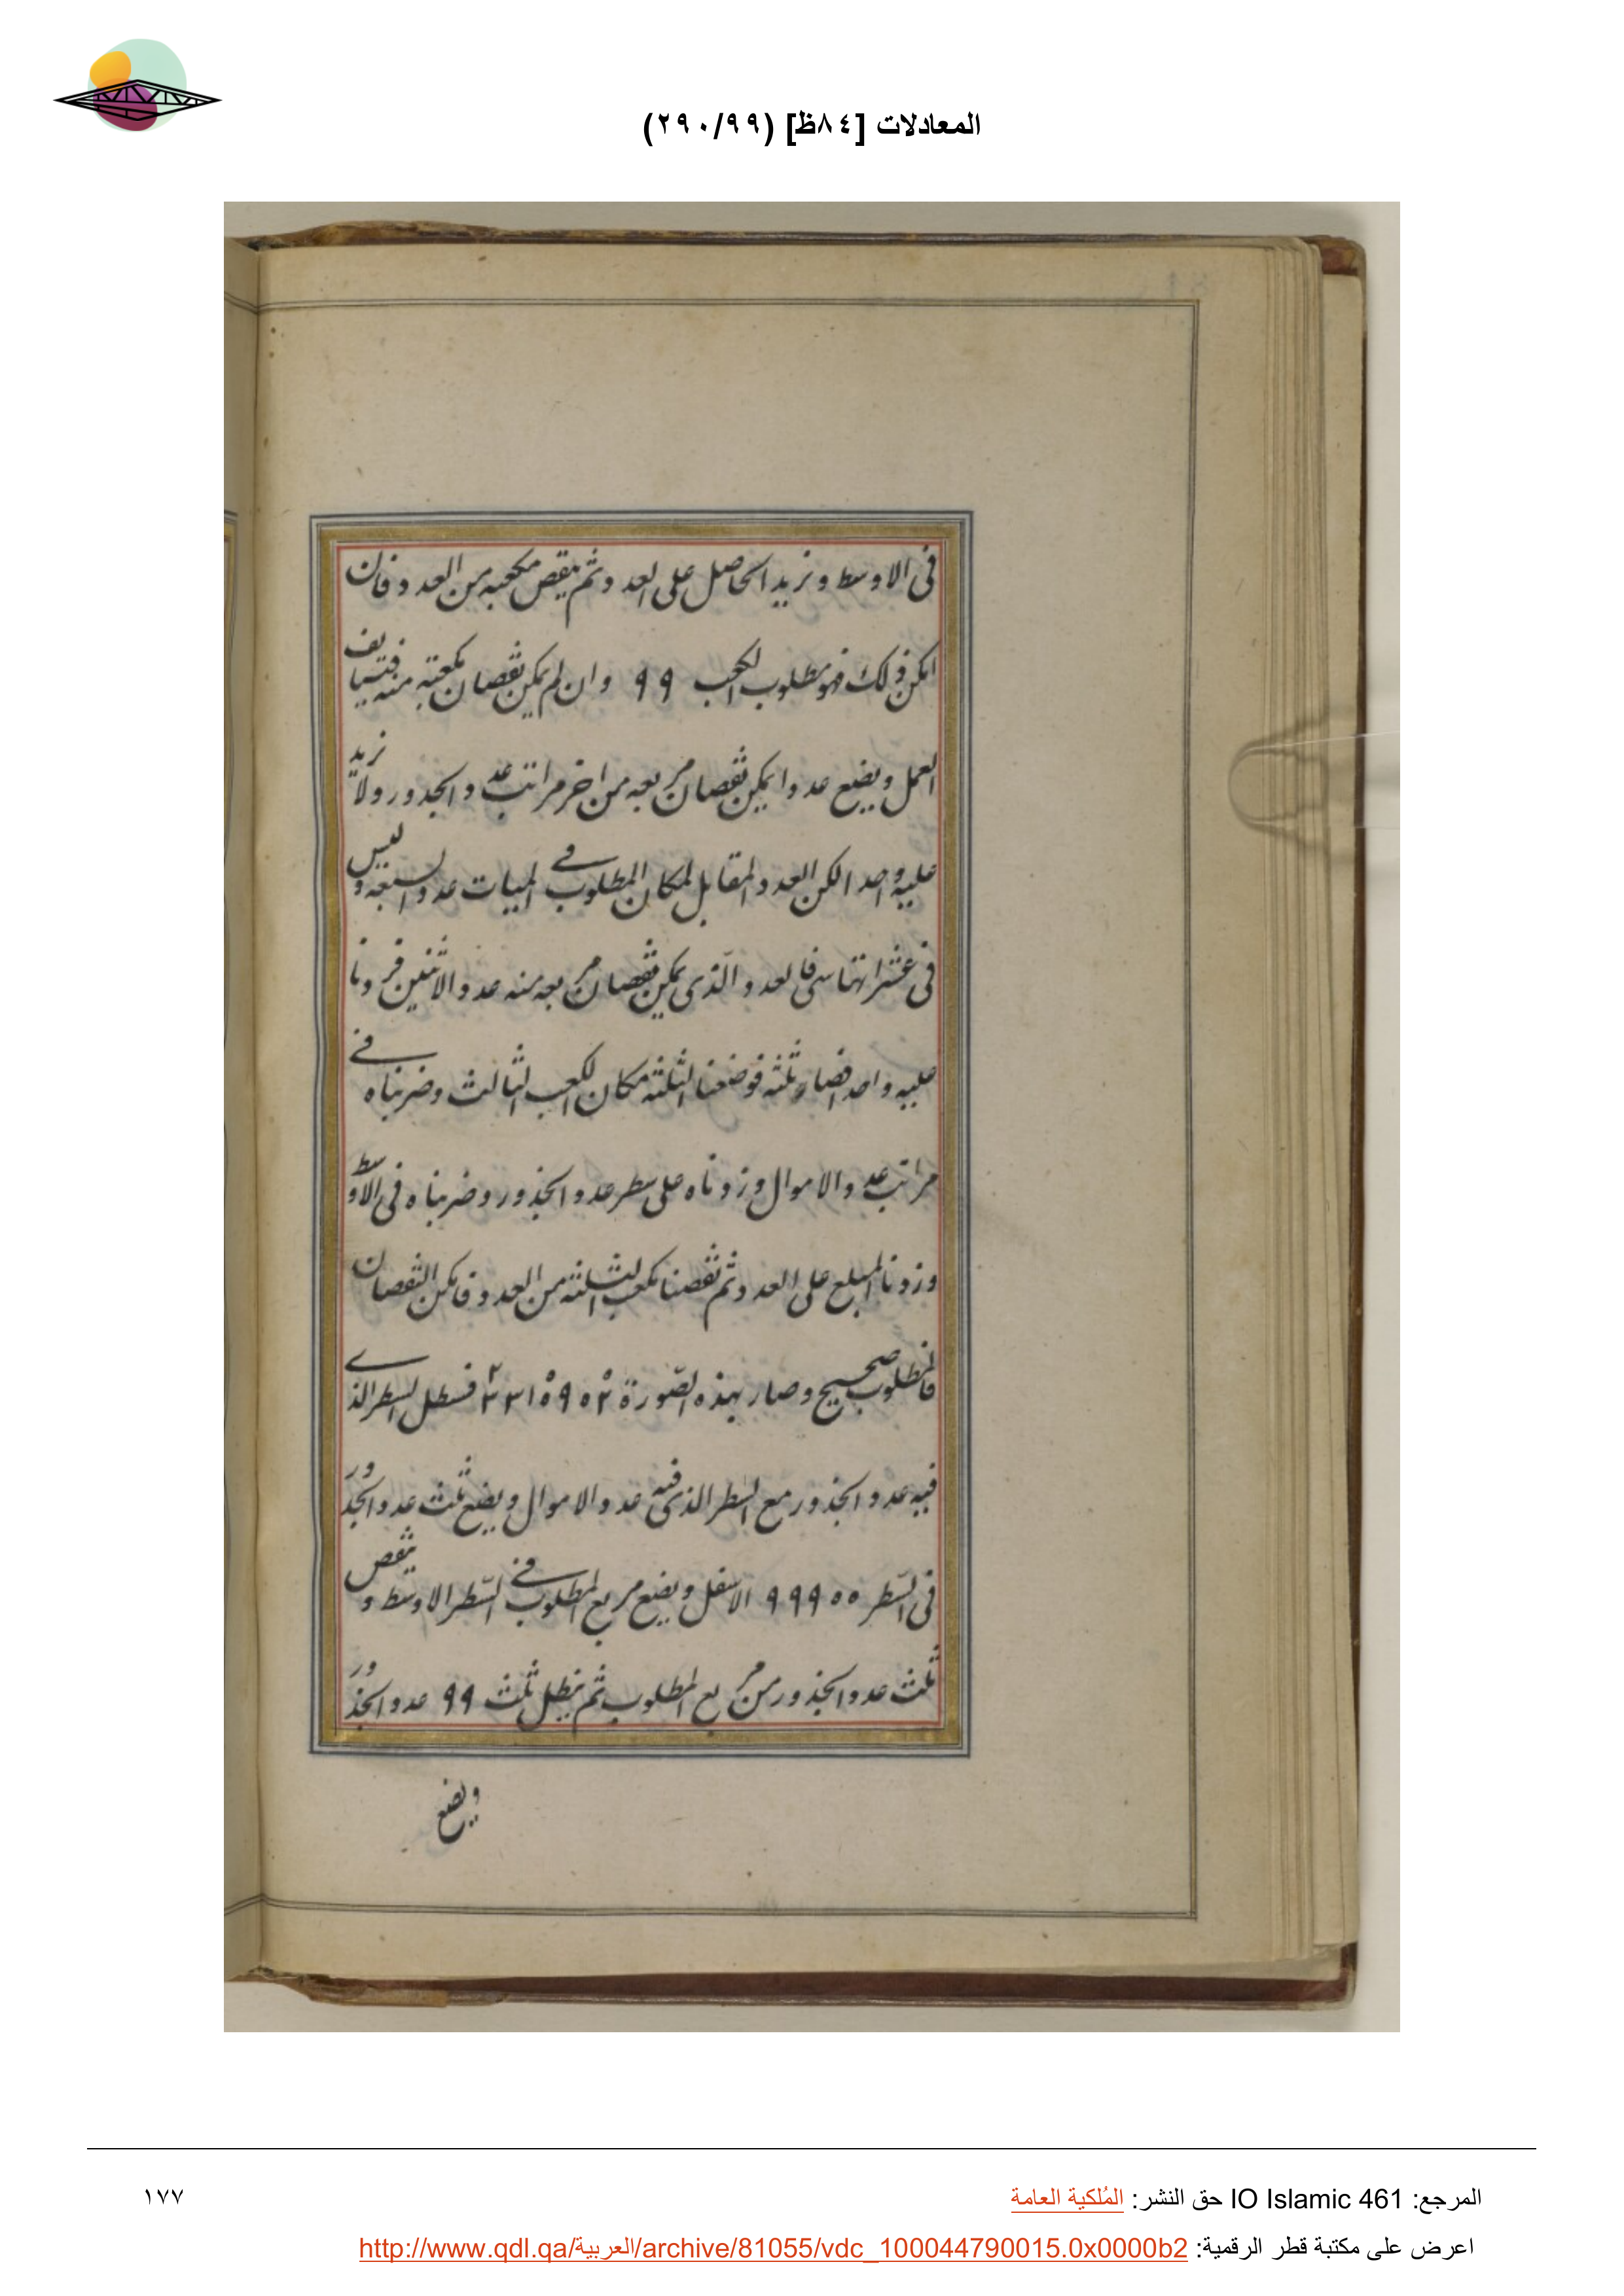 المعادلات [٨٤ظ] (٢٩٠/٩٩)
فى الاوسط ونزيد الحاصل على العدد ثم ينقص مكعبه من العدد فان
امكن ذلك فهو مطلوب الكعب ٩٩ وان لم يمكن نقصان مكعبه منه فنستأنف
العمل ويضع عددا يمكن نقصان مربعه من اخر مراتب عدد الجذور ولا نزيد
عليه واحدا لكن العدد المقابل لمكان المطلوب فى الميات عدد السبعة وليس
فى عشراتها سى فالعدد الذى يمكن نقصان مربعه منه عدد الاثنين فزدنا
عليه واحدا فصار ثلثه فوضعنا الثلثه مكان الكعب الثالث وضربناه فى
مراتب عدد الاموال وزدناه على سطر عدد الجذور وضربناه فى الاوسط
وزدنا المبلغ على العدد ثم نقصنا مكعب الثلثه من العدد فامكن النقصان
فالمطلوب صحيح وصار بهذه الصورة فسطل السطر الذى
فيه عدد الجذور مع السطر الذى فيه عدد الاموال ويضع ثلث عدد الجذور
فى السطر ٩٩٩٥٥ الاسفل ويضع مربع المطلوب فى السطر الاوسط وينقص
ثلث عدد الجذور من مربع المطلوب ثم يبطل ثلث ٩٩ عدد الجذور
ويضع
المرجع: IO Islamic 461 حق النشر: المُلكية العامة
١٧٧
اعرض على مكتبة قطر الرقمية: http://www.qdl.qa/العربية/archive/81055/vdc_100044790015.0x0000b2